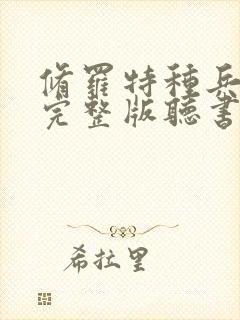 脩羅特種兵
完整版聽書
希拉里